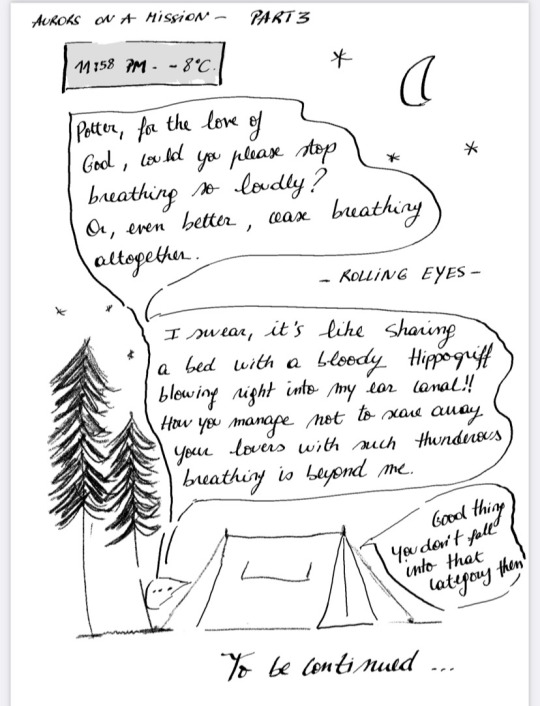 AURORS ON A MISSION - PART 3
11:58 PM. - -8°C.
Potter, for the love of
God, could you please stop
breathing so loudly?
Or, even better, cease breathing
altogether.
- ROLLING EYES -
I swear, it's like sharing
a bed with a bloody Hippogriff
blowing right into my ear canal!!
How you manage not to scare away
your lovers with such thunderous
breathing is beyond me.
Good thing
you don't fall
into that
category then
...
To be continued ...